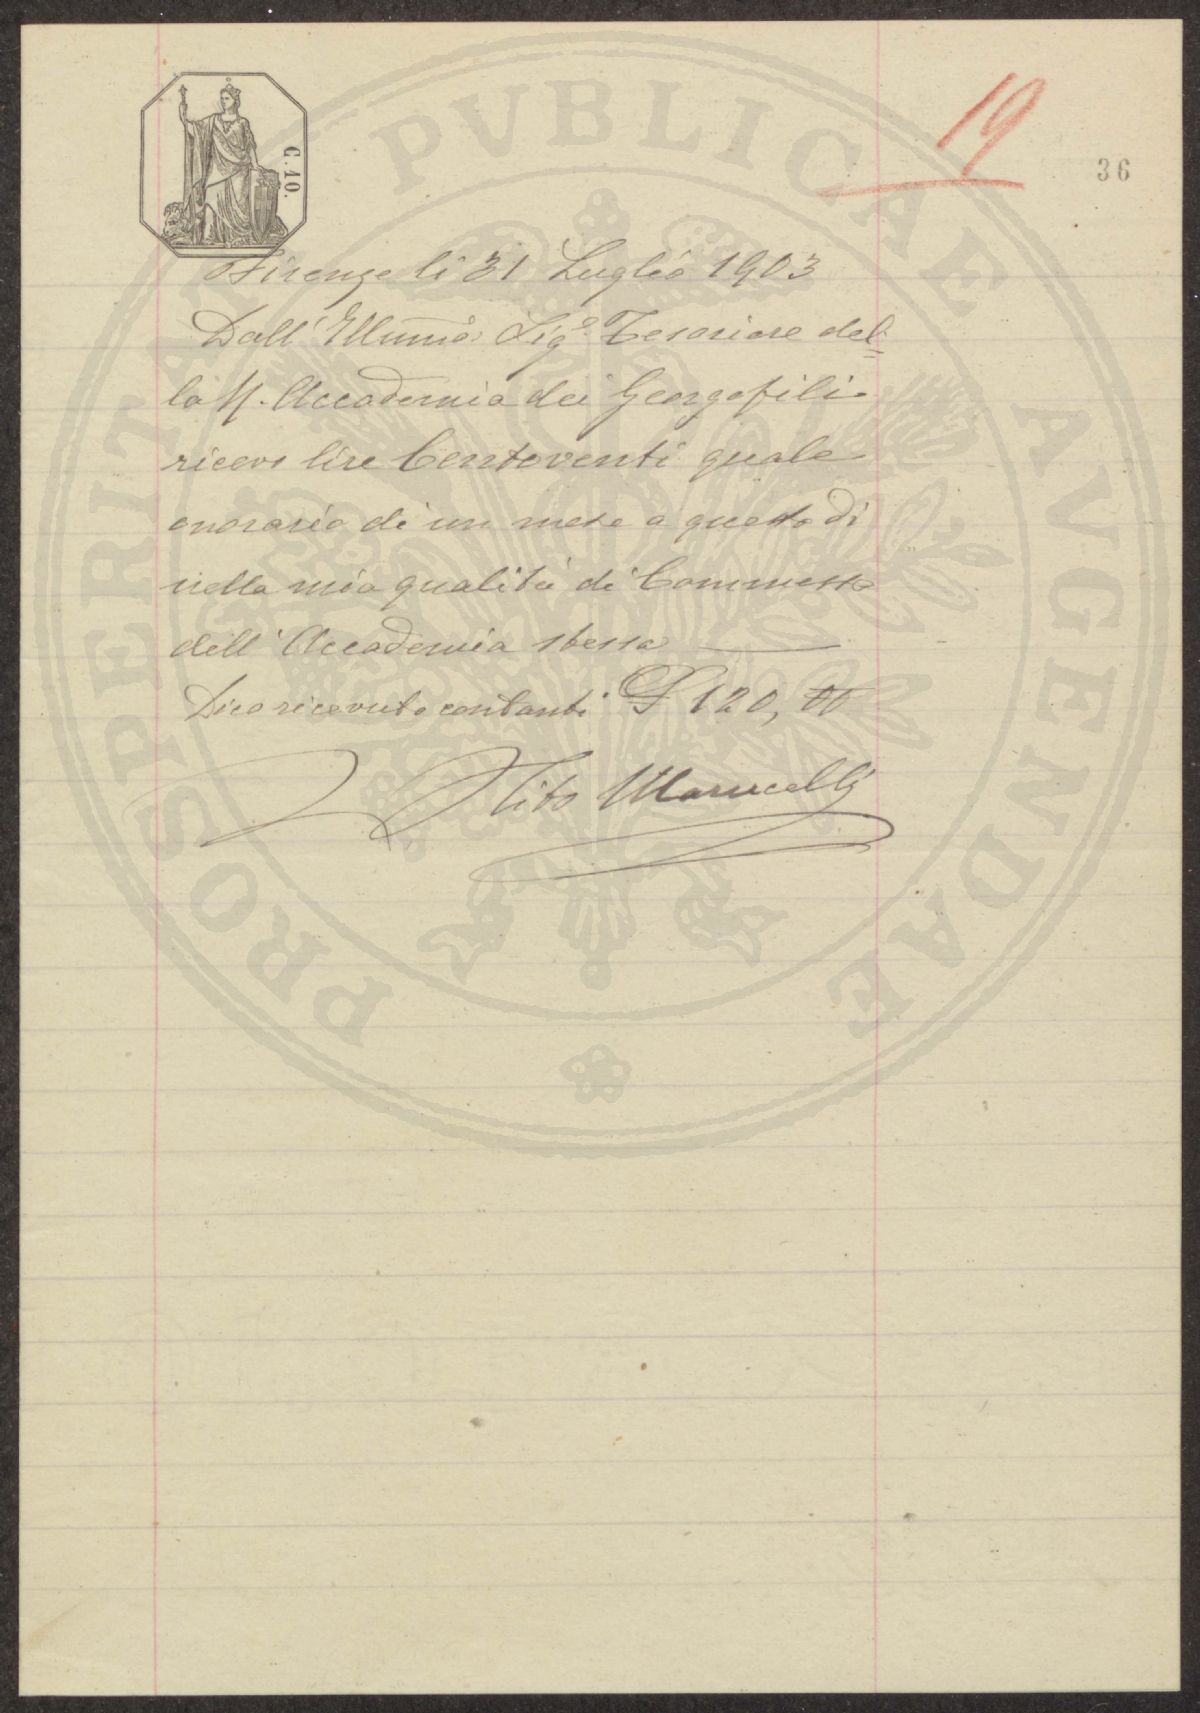 19
36
C. 10.
Firenze li 31 Luglio 1903
Dall' Illmo Sigr Tesoriere del=
la R. Accademia dei Georgofili
ricevo lire Centoventi quale
onorario di un mese a questo dì
nella mia qualità di Commesso
dell'Accademia stessa
Dico ricevuto contanti £ 120, 00
Tito Marucelli
PROSPERITATI PVBLICAE AVGENDAE